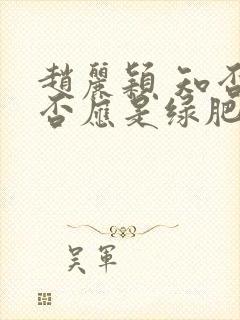 趙麗穎 知否
否應是绿肥
吴軍